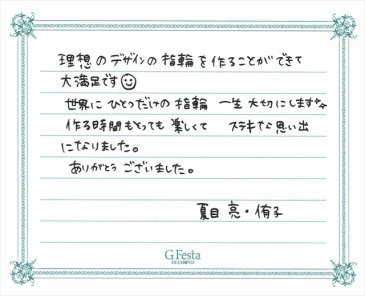 理想のデザインの指輪を作ることができて
大満足です
世界にひとつだけの指輪 一生大切にします☆
作る時間もとっても楽しくて ステキな思い出
になりました。
ありがとうございました。
夏目 亮・侑子
G.Festa
DIAMONDS